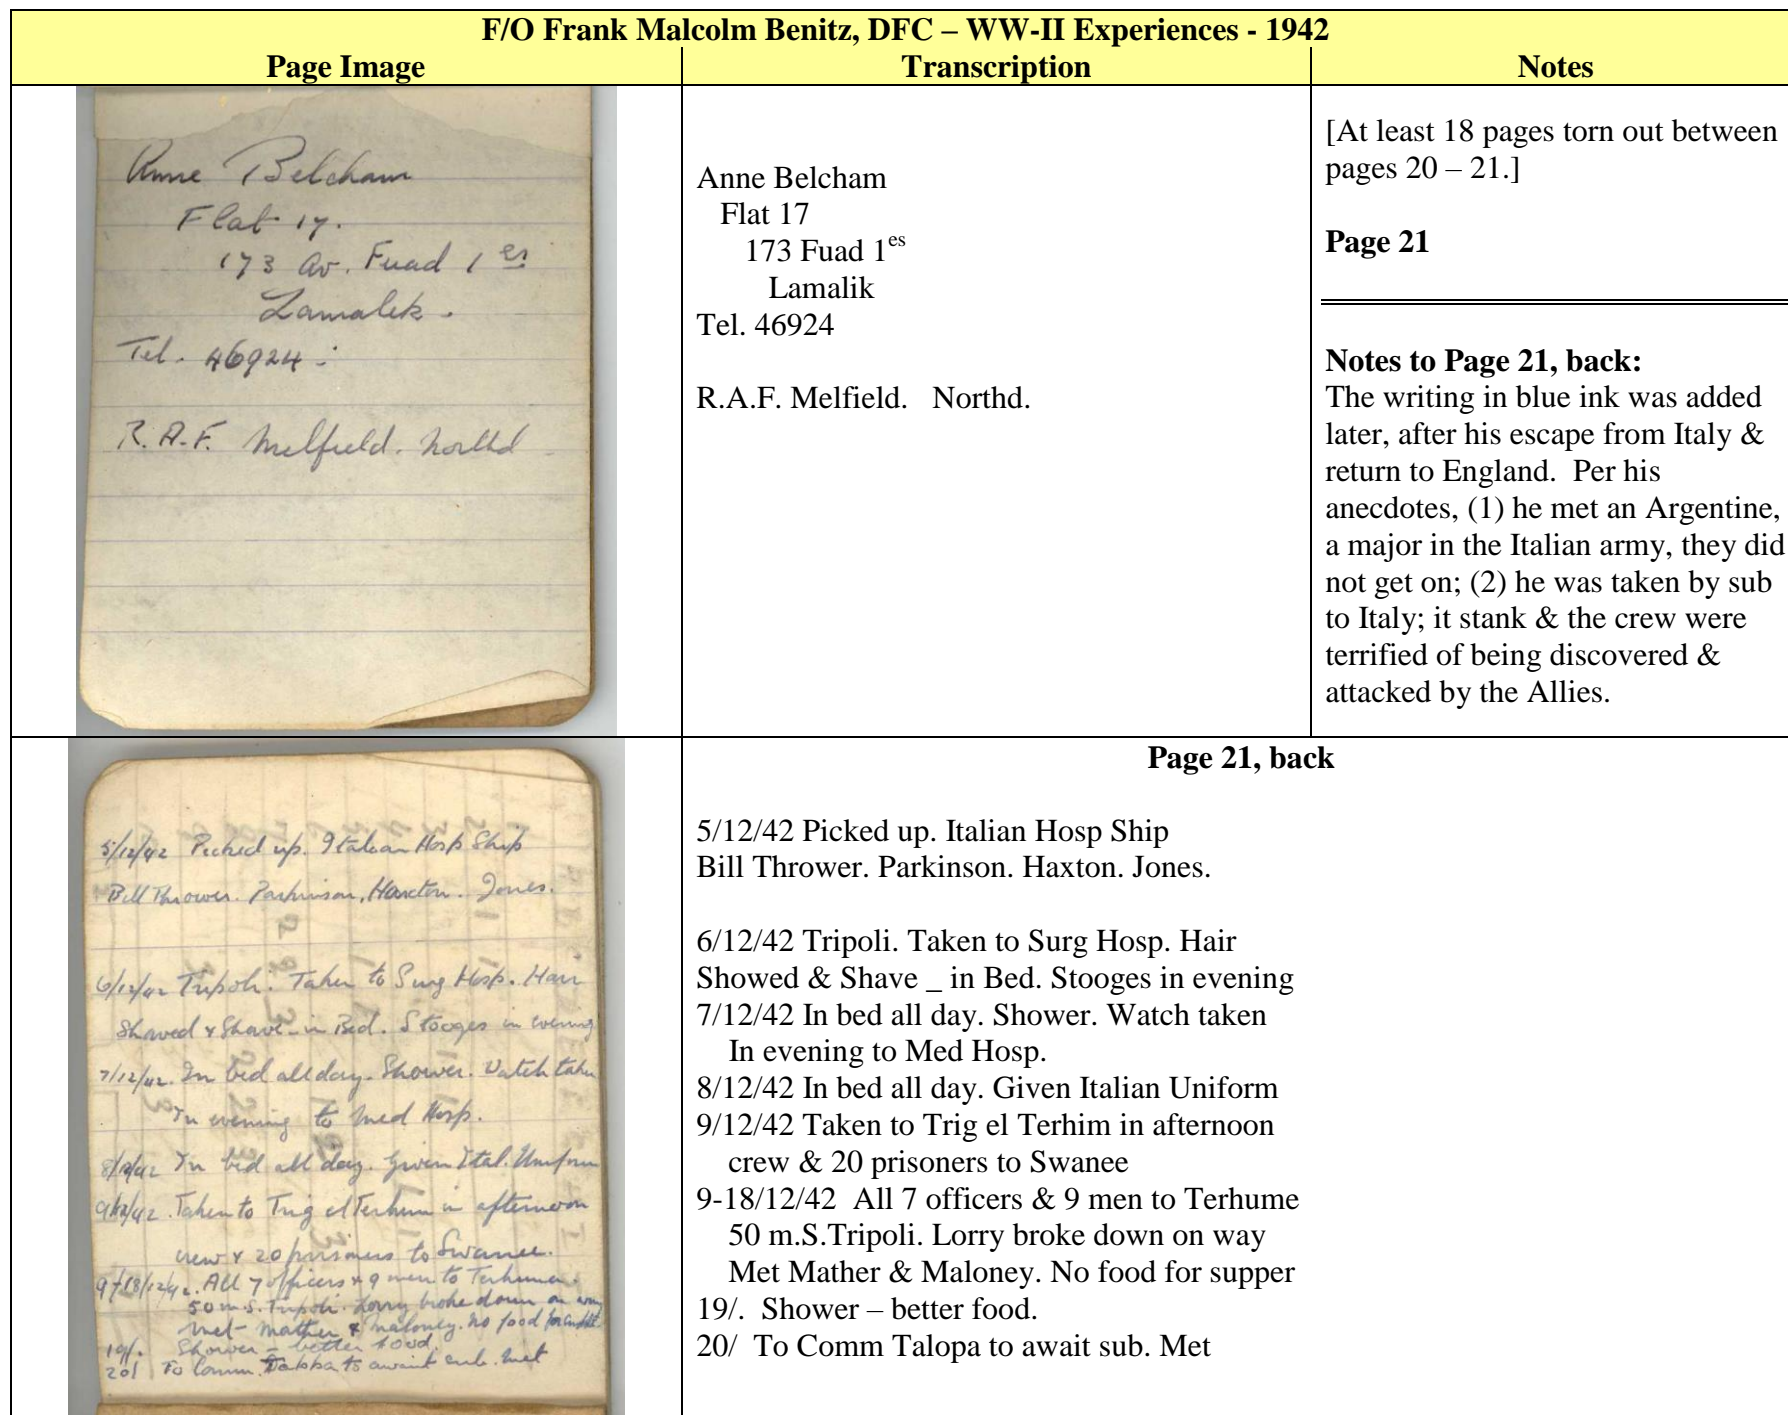 F/O Frank Malcolm Benitz, DFC – WW-II Experiences - 1942
Page Image
Transcription
Notes
Anne Belcham
Flat 17.
173 Av. Fuad 1 er
Zamalek.
Tel. 46924 :
R.A.F. Melfield. Northd
Anne Belcham
Flat 17
173 Fuad 1es
Lamalik
Tel. 46924
R.A.F. Melfield.   Northd.
[At least 18 pages torn out between
pages 20 – 21.]
Page 21
Notes to Page 21, back:
The writing in blue ink was added
later, after his escape from Italy &
return to England.  Per his
anecdotes, (1) he met an Argentine,
a major in the Italian army, they did
not get on; (2) he was taken by sub
to Italy; it stank & the crew were
terrified of being discovered &
attacked by the Allies.
5/12/42 Picked up. Italian Hosp Ship
Bill Thrower. Parkinson, Haxton. Jones.
6/12/42 Tripoli. Taken to Surg Hosp. Hair
Shaved & Shave - in Bed. Stooges in evening
7/12/42. In bed all day. Shower. Watch taken
In evening to Med Hosp.
8/12/42 In bed all day. Given Ital. Uniform
9/12/42. Taken to Trig el Terhum in afternoon
crew & 20 prisoners to Swanee.
9-18/12/42. All 7 officers & 9 men to Terhuna.
50 m.S. Tripoli. Lorry broke down on way
Met Mather & Maloney. No food for supper
19/. Shower – better food.
20/ To Comm. Tappa to await sub. Met
Page 21, back
5/12/42 Picked up. Italian Hosp Ship
Bill Thrower. Parkinson. Haxton. Jones.
6/12/42 Tripoli. Taken to Surg Hosp. Hair
Showed & Shave _ in Bed. Stooges in evening
7/12/42 In bed all day. Shower. Watch taken
In evening to Med Hosp.
8/12/42 In bed all day. Given Italian Uniform
9/12/42 Taken to Trig el Terhim in afternoon
crew & 20 prisoners to Swanee
9-18/12/42  All 7 officers & 9 men to Terhume
50 m.S.Tripoli. Lorry broke down on way
Met Mather & Maloney. No food for supper
19/.  Shower – better food.
20/  To Comm Talopa to await sub. Met